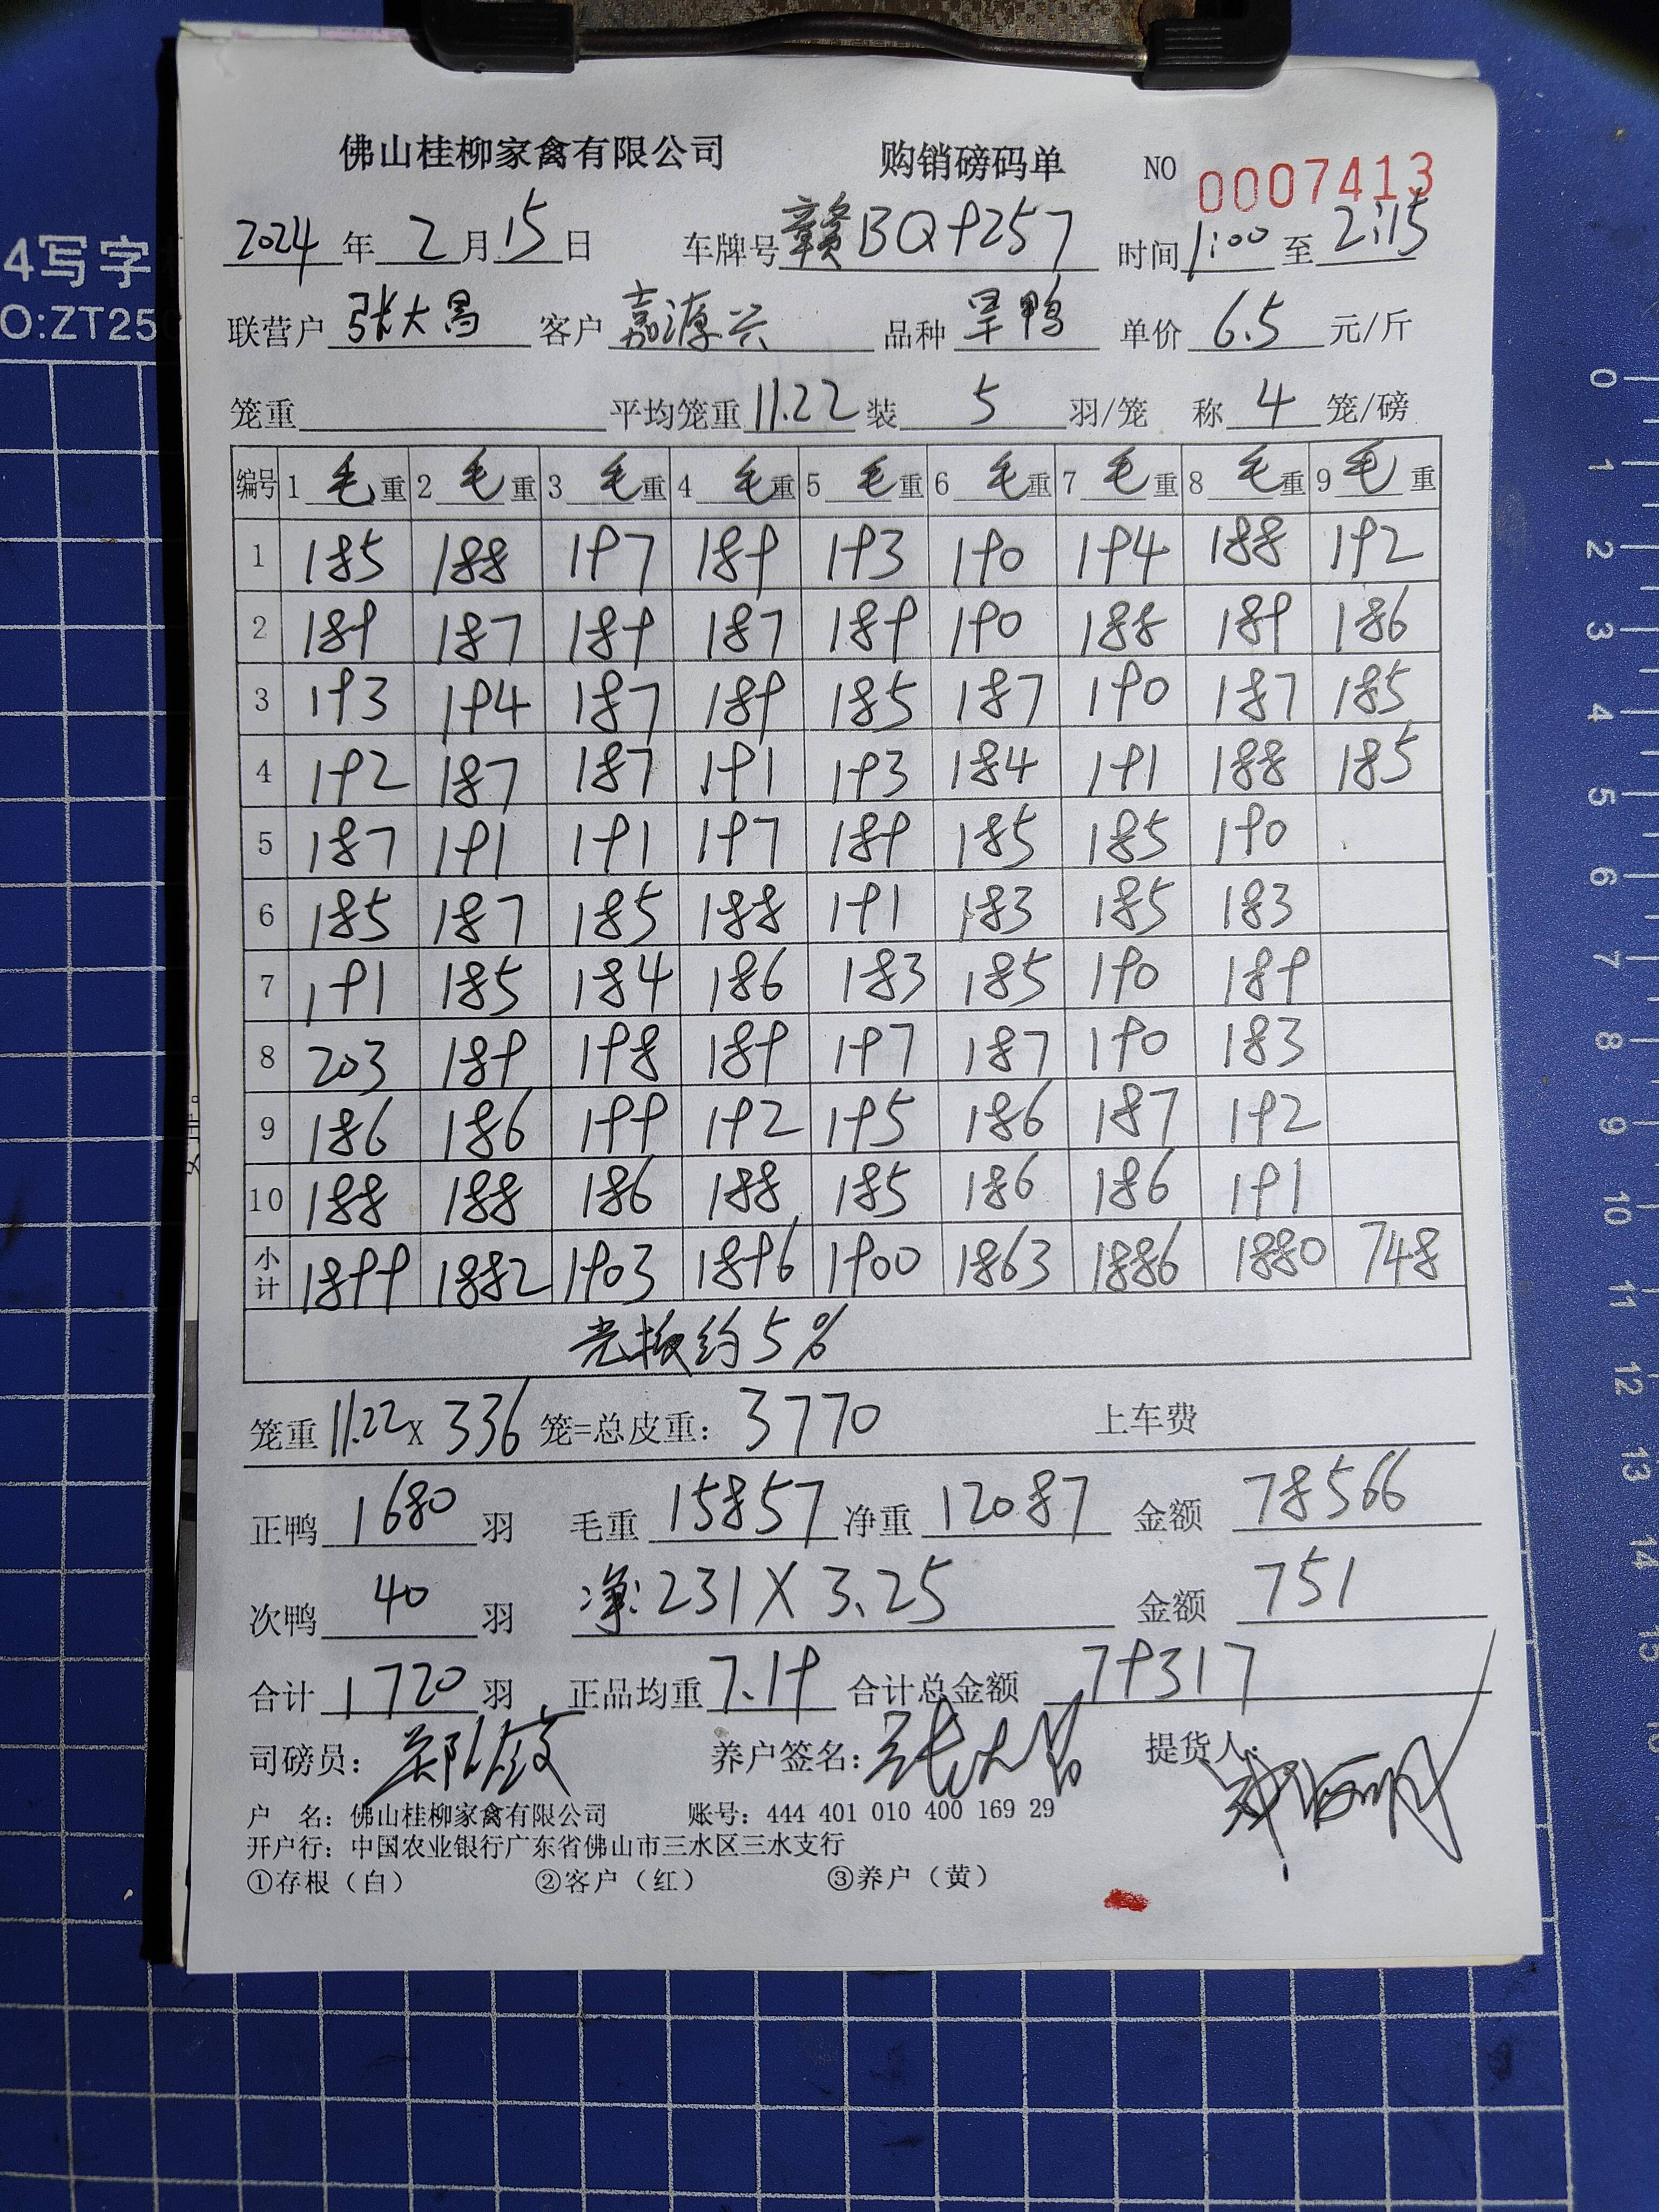 佛山桂柳家禽有限公司 购销磅码单 NO 0007413
2024年2月15日 车牌号 赣BQ9257 时间 1:00 至 2:15
联营户 张大昌 客户 嘉源兴 品种 旱鸭 单价 6.5 元/斤
笼重 平均笼重 11.22 装 5 羽/笼 称 4 笼/磅
编号 1 毛重 2 毛重 3 毛重 4 毛重 5 毛重 6 毛重 7 毛重 8 毛重 9 毛重
1 185 188 197 189 193 190 194 188 192
2 189 187 189 187 189 190 188 189 186
3 193 194 187 189 185 187 190 187 185
4 192 187 187 191 193 184 191 188 185
5 187 191 191 197 189 185 185 190
6 185 187 185 188 191 183 185 183
7 191 185 184 186 183 185 190 189
8 203 189 198 189 197 187 190 183
9 186 186 199 192 195 186 187 192
10 188 188 186 188 185 186 186 191
小计 1899 1882 1903 1896 1900 1863 1886 1880 748
光板约5%
笼重 11.22 X 336 笼=总皮重: 3770 上车费
正鸭 1680 羽 毛重 15857 净重 12087 金额 78566
次鸭 40 羽 净: 231 X 3.25 金额 751
合计 1720 羽 正品均重 7.19 合计总金额 79317
司磅员: 养户签名: 张大昌 提货人:
户 名: 佛山桂柳家禽有限公司 账号: 444 401 010 400 169 29
开户行: 中国农业银行广东省佛山市三水区三水支行
①存根（白） ②客户（红） ③养户（黄）
4写字
O:ZT25
0
1
2
3
4
5
6
7
8
9
10
11
12
13
14
15